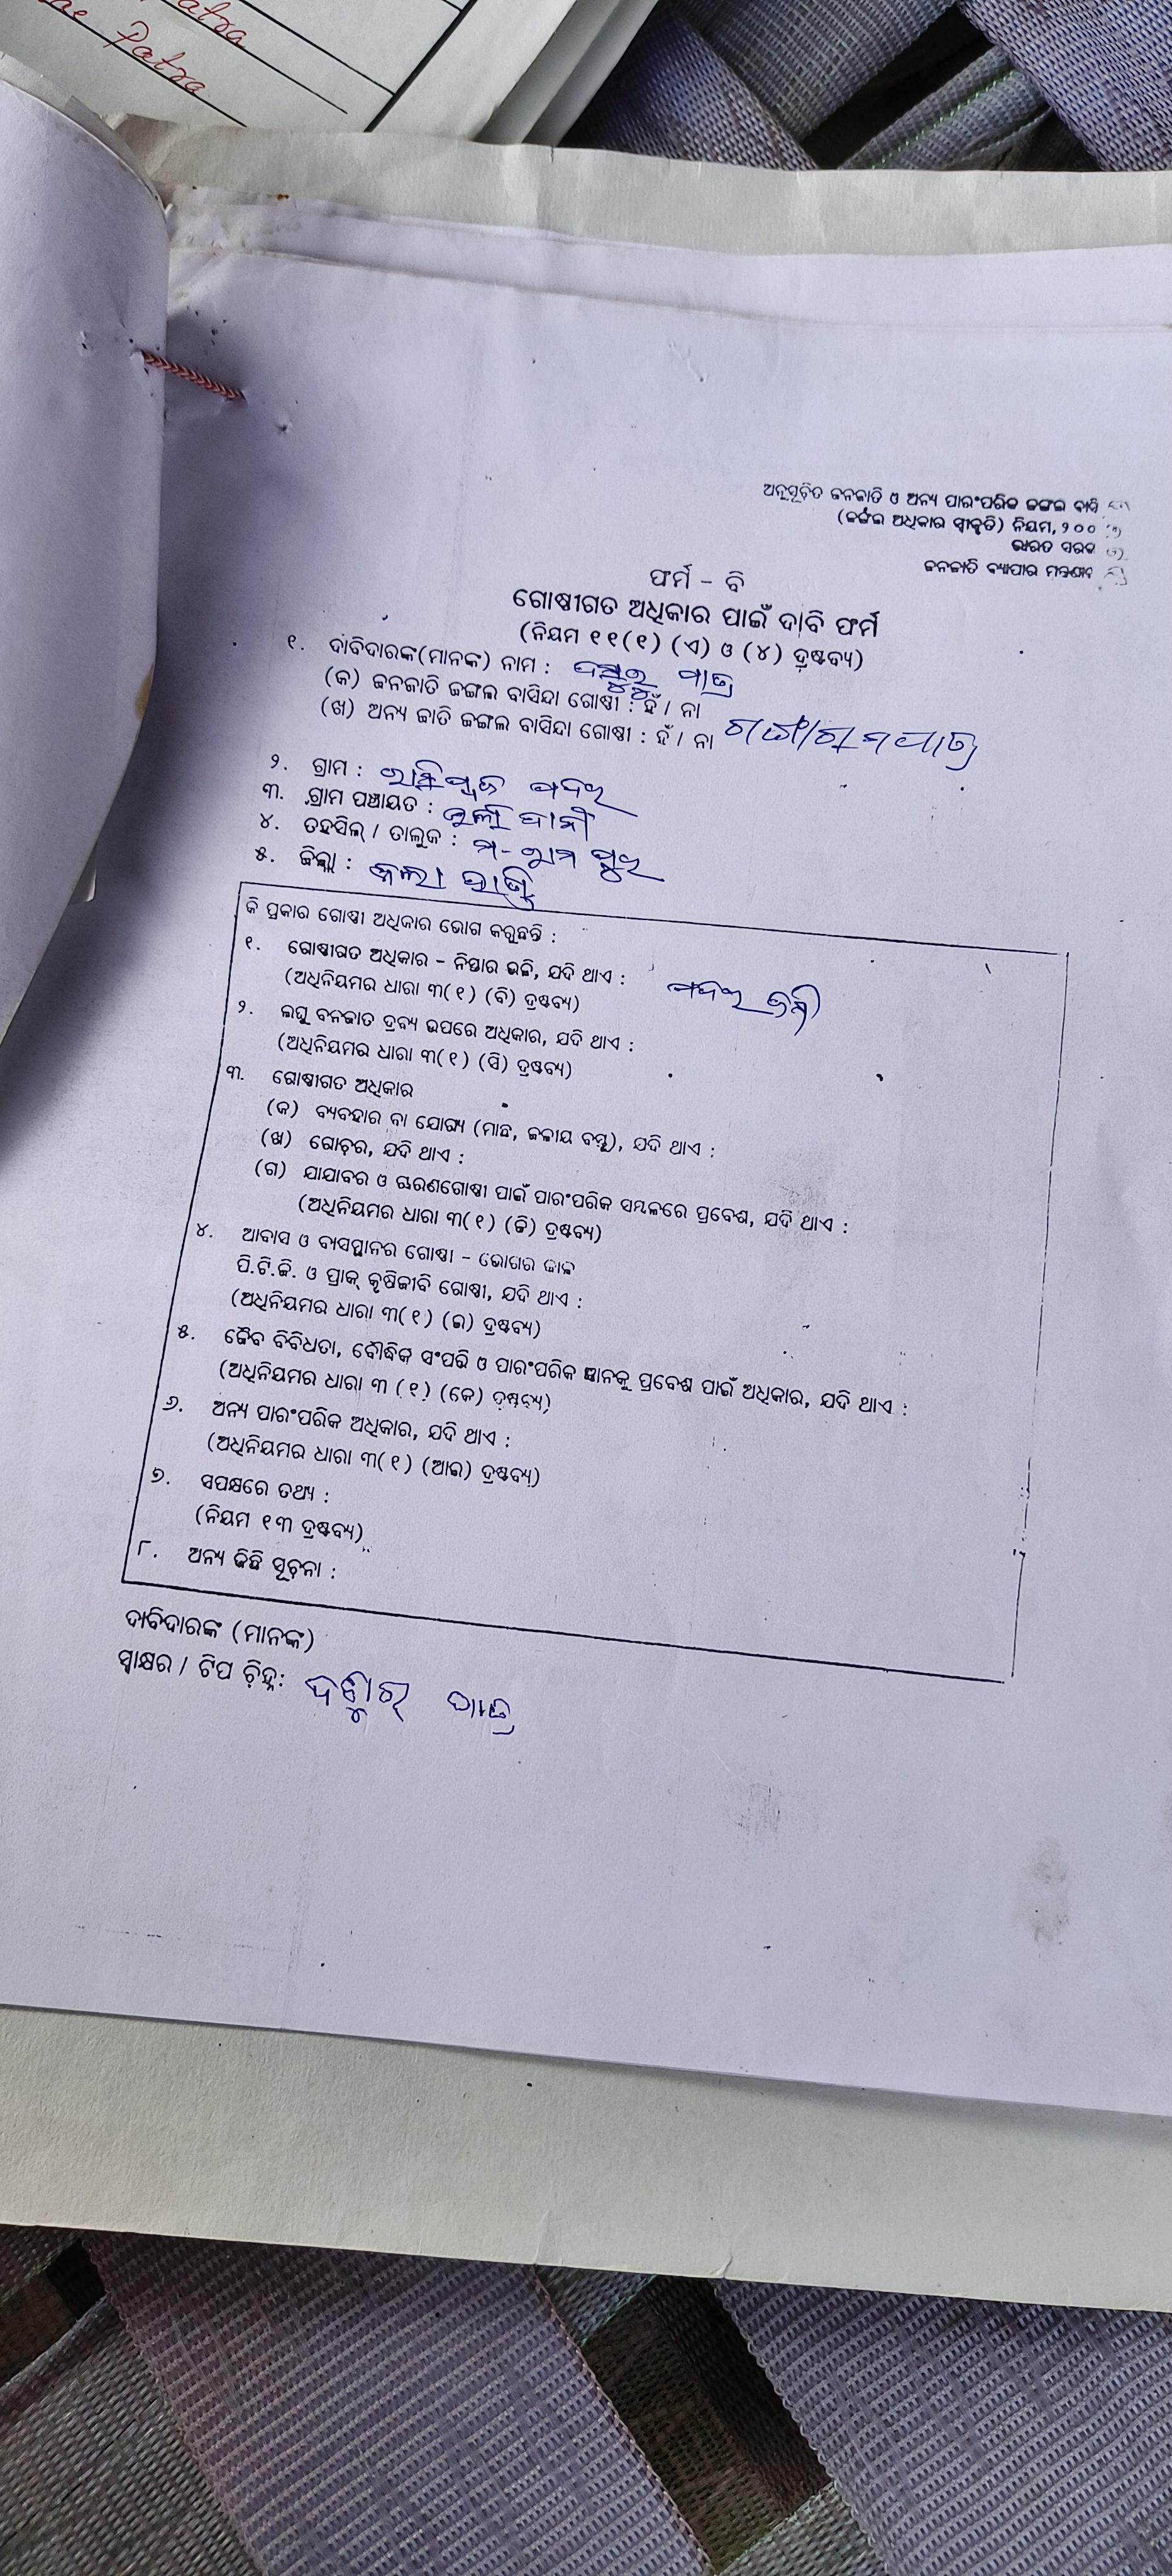 atra
Patra
ଅନୁସୂଚିତ ଜନଜାତି ଓ ଅନ୍ୟ ପାରଂପରିକ ଜଙ୍ଗଲ ବାସି
(ଜଙ୍ଗଲ ଅଧିକାର ସ୍ୱୀକୃତି) ନିୟମ, ୨୦୦
ଭାରତ ସରକ
ଜନଜାତି ବ୍ୟାପାର ମନ୍ତ୍ରଣାଳ
ଫର୍ମ - ବି
ଗୋଷ୍ଠୀଗତ ଅଧିକାର ପାଇଁ ଦାବି ଫର୍ମ
(ନିୟମ ୧୧(୧) (ଏ) ଓ (୪) ଦ୍ରଷ୍ଟବ୍ୟ)
୧. ଦାବିଦାରଙ୍କ(ମାନଙ୍କ) ନାମ : ପାତ୍ର
(କ) ଜନଜାତି ଜଙ୍ଗଲ ବାସିନ୍ଦା ଗୋଷ୍ଠୀ : ହଁ / ନା
(ଖ) ଅନ୍ୟ ଜାତି ଜଙ୍ଗଲ ବାସିନ୍ଦା ଗୋଷ୍ଠୀ : ହଁ / ନା
୨. ଗ୍ରାମ :
୩. ଗ୍ରାମ ପଞ୍ଚାୟତ :
୪. ତହସିଲ୍ / ତାଲୁକ : ମ- ରାମ ପୁର
୫. ଜିଲ୍ଲା : କଳା ହାଣ୍ଡି
କି ପ୍ରକାର ଗୋଷ୍ଠୀ ଅଧିକାର ଭୋଗ କରୁଛନ୍ତି :
୧. ଗୋଷ୍ଠୀଗତ ଅଧିକାର - ନିସ୍ତାର ଭଳି, ଯଦି ଥାଏ :
(ଅଧିନିୟମର ଧାରା ୩(୧) (ବି) ଦ୍ରଷ୍ଟବ୍ୟ)
୨. ଲଘୁ ବନଜାତ ଦ୍ରବ୍ୟ ଉପରେ ଅଧିକାର, ଯଦି ଥାଏ :
(ଅଧିନିୟମର ଧାରା ୩(୧) (ସି) ଦ୍ରଷ୍ଟବ୍ୟ)
୩. ଗୋଷ୍ଠୀଗତ ଅଧିକାର
(କ) ବ୍ୟବହାର ବା ଯୋଗ୍ୟ (ମାଛ, ଜଳୀୟ ବସ୍ତୁ), ଯଦି ଥାଏ :
(ଖ) ଗୋଚର, ଯଦି ଥାଏ :
(ଗ) ଯାଯାବର ଓ ଚାରଣଗୋଷ୍ଠୀ ପାଇଁ ପାରଂପରିକ ସମ୍ବଳରେ ପ୍ରବେଶ, ଯଦି ଥାଏ :
(ଅଧିନିୟମର ଧାରା ୩(୧) (ଜି) ଦ୍ରଷ୍ଟବ୍ୟ)
୪. ଆବାସ ଓ ବାସସ୍ଥାନର ଗୋଷ୍ଠୀ - ଭୋଗର କାଳ
ପି.ଟି.ଜି. ଓ ପ୍ରାକ୍ କୃଷିଜୀବି ଗୋଷ୍ଠୀ, ଯଦି ଥାଏ :
(ଅଧିନିୟମର ଧାରା ୩(୧) (ଇ) ଦ୍ରଷ୍ଟବ୍ୟ)
୫. ଜୈବ ବିବିଧତା, ବୌଦ୍ଧିକ ସଂପତ୍ତି ଓ ପାରଂପରିକ ଜ୍ଞାନକୁ ପ୍ରବେଶ ପାଇଁ ଅଧିକାର, ଯଦି ଥାଏ :
(ଅଧିନିୟମର ଧାରା ୩ (୧) (କେ) ଦ୍ରଷ୍ଟବ୍ୟ)
୬. ଅନ୍ୟ ପାରଂପରିକ ଅଧିକାର, ଯଦି ଥାଏ :
(ଅଧିନିୟମର ଧାରା ୩(୧) (ଆଇ) ଦ୍ରଷ୍ଟବ୍ୟ)
୭. ସପକ୍ଷରେ ତଥ୍ୟ :
(ନିୟମ ୧୩ ଦ୍ରଷ୍ଟବ୍ୟ)
୮. ଅନ୍ୟ କିଛି ସୂଚନା :
ଦାବିଦାରଙ୍କ (ମାନଙ୍କ)
ସ୍ୱାକ୍ଷର / ଟିପ ଚିହ୍ନ: ପାତ୍ର